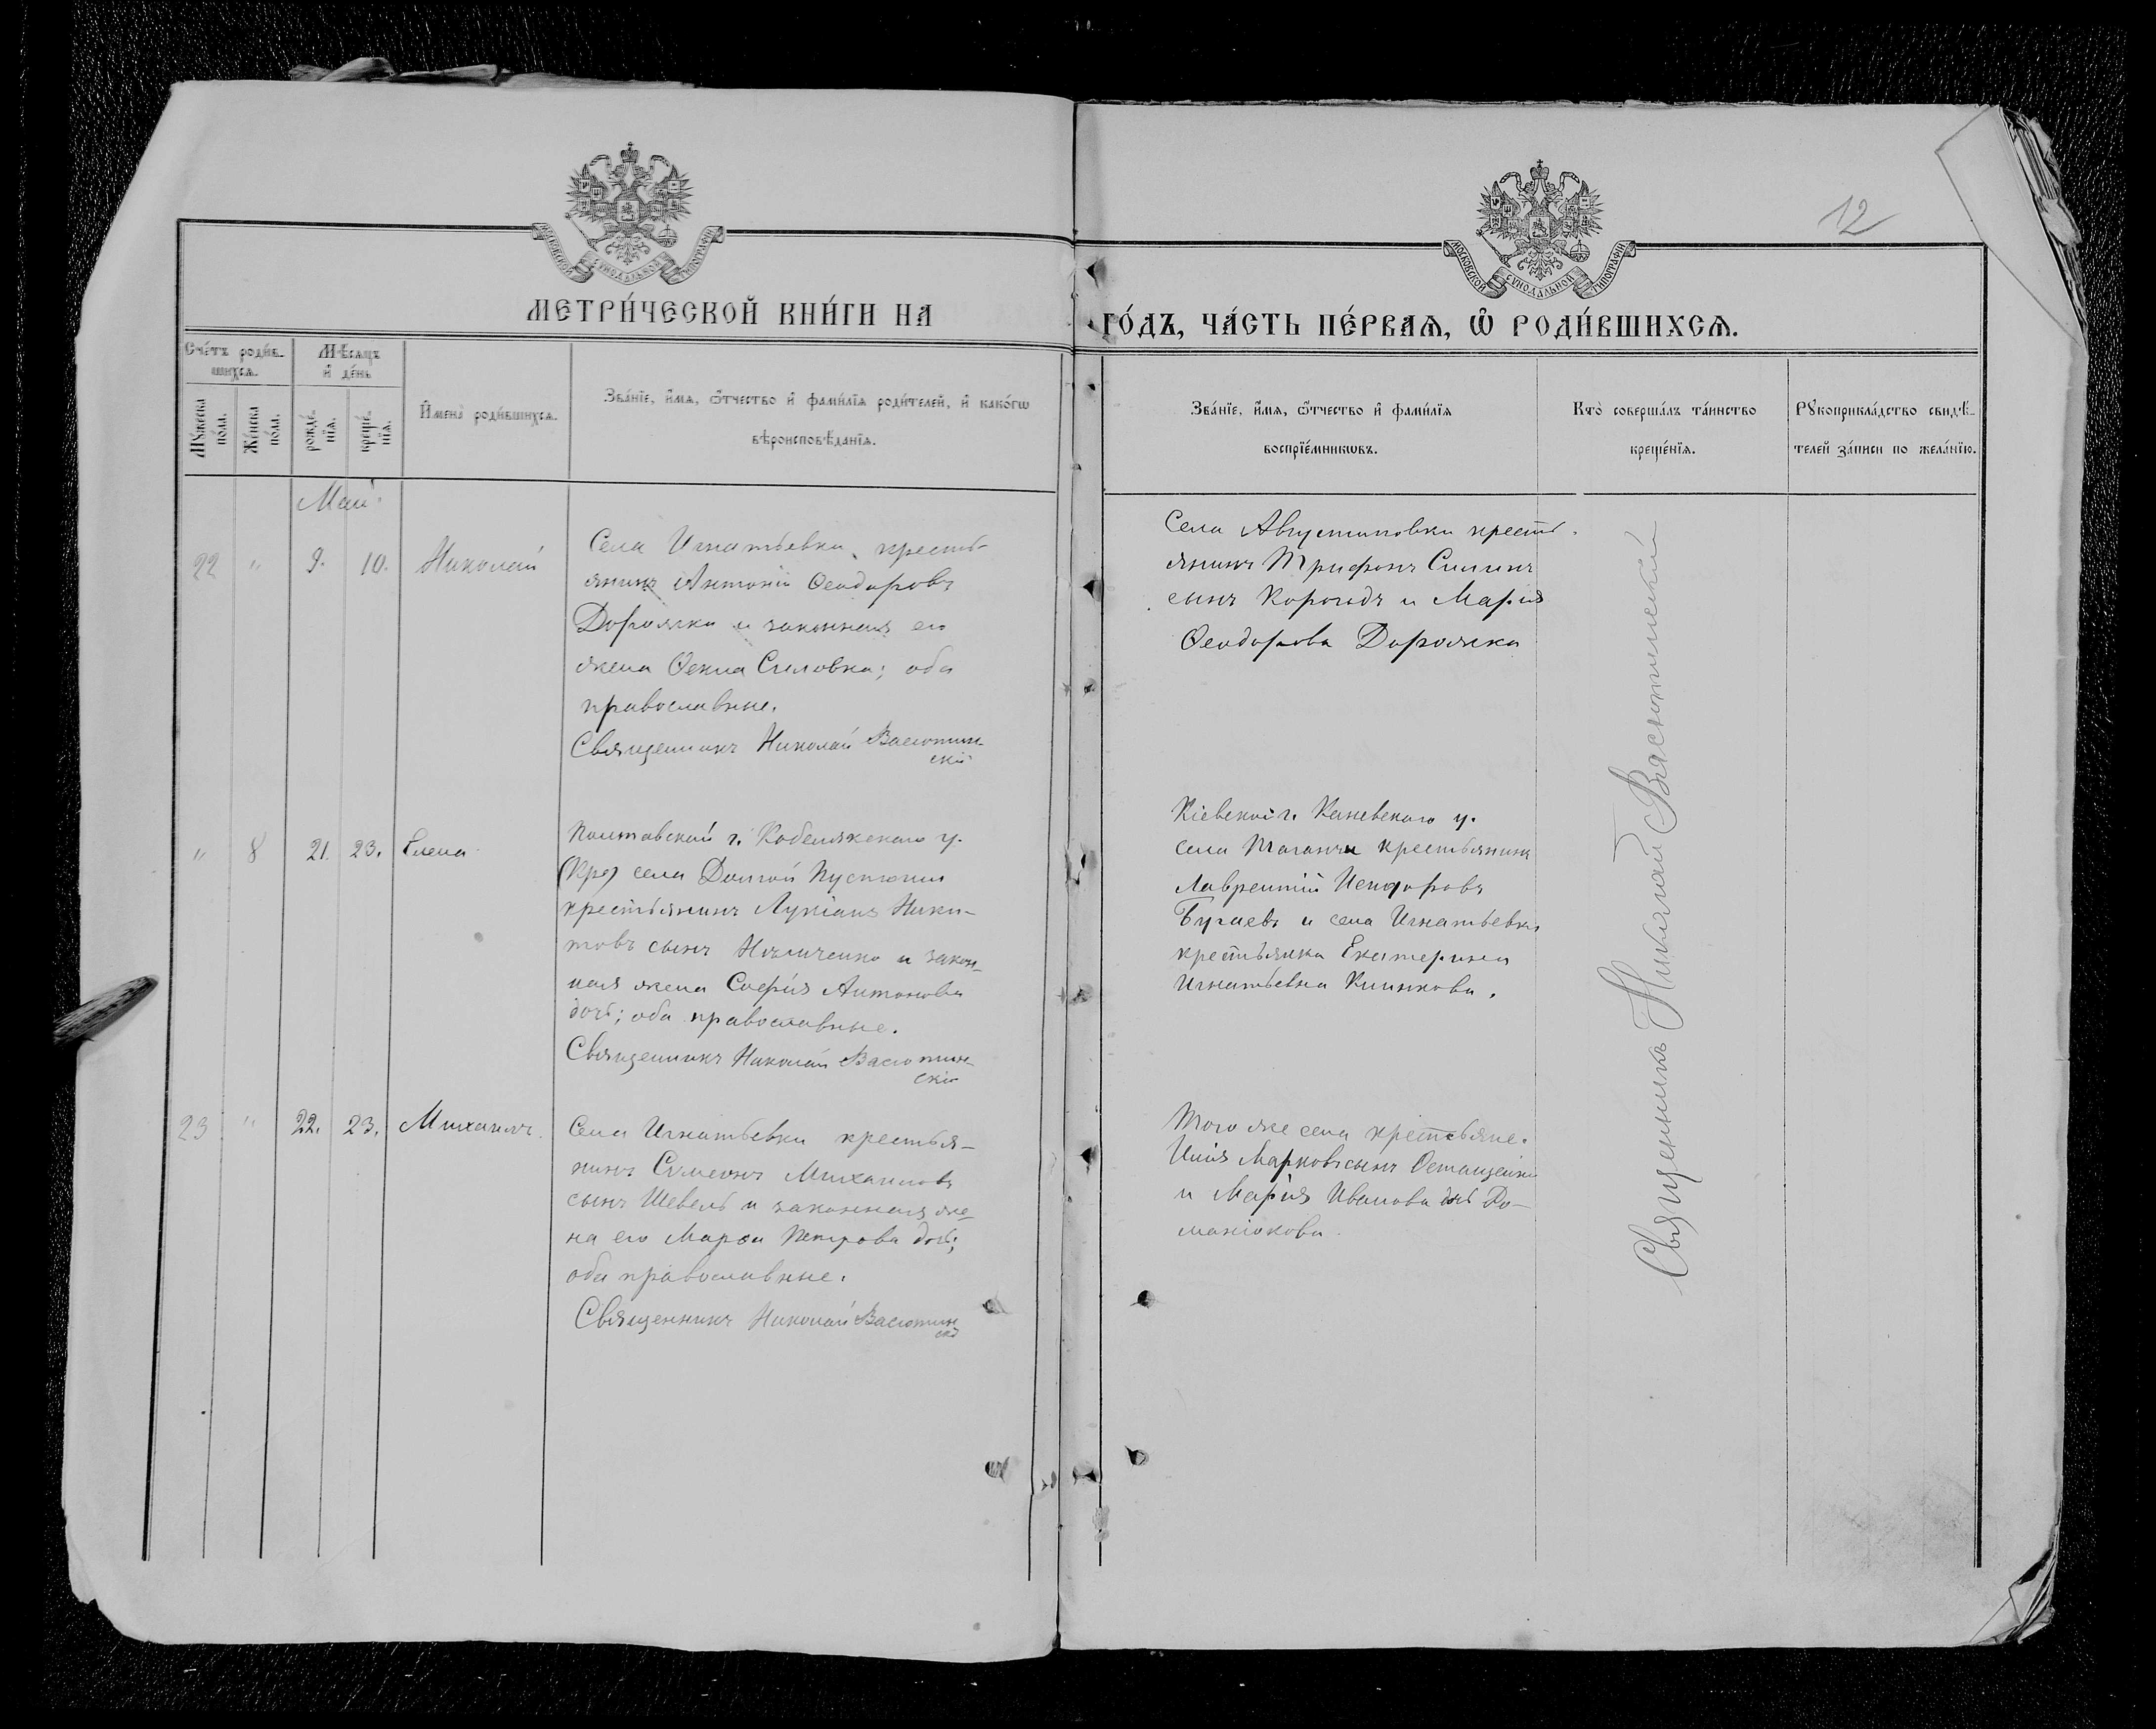 12
МОСКОВСКОЙ СѴНОДАЛЬНОЙ ТИПОГРАФІИ
МОСКОВСКОЙ СѴНОДАЛЬНОЙ ТИПОГРАФІИ
МЕТРИ́ЧЕСКОЙ КНИ́ГИ НА
ГО́ДЪ, ЧА́СТЬ ПЕ́РВАѦ, Ѡ҆ РОДИ́ВШИХСѦ.
Сче́тъ роди́в-
шихсѧ.
Мꙋ́жеска по́ла.
Же́нска по́ла.
Мѣ́сѧцъ
и҆ де́нь
рожде́-
нїѧ.
креще́-
нїѧ.
И҆мена̀ роди́вшихсѧ.
Зва́нїе, и҆́мѧ, ѻ҆́тчество и҆ фами́лїѧ роди́телей, и҆ како́гѡ
вѣроисповѣ́данїѧ.
Зва́нїе, и҆́мѧ, ѻ҆́тчество и҆ фами́лїѧ
воспрїе́мникѡвъ.
Кто̀ соверша́лъ та́инство
креще́нїѧ.
Рꙋкоприкла́дство свидѣ́-
телей за́писи по жела́нїю.
Май
22 " 9. 10. Николай
Села Игнатьевки, кресть-
янинъ Антоній Ѳеодоровъ
и законная его
жена Ѳекла Силовна; оба
православные.
Священникъ Николай Васютин-
скій
Села Августиновки кресть-
янинъ Трифонъ Силинъ
сынъ Корогодъ и Марія
Ѳеодорова
" 8 21. 23. Елена
Полтавской г. Кобелякскаго у.
(Кре) села Долгой Пустыни
крестьянинъ Лукіанъ Ники-
товъ сынъ и закон-
ная жена Софія Антонова
дочь; оба православные.
Священникъ Николай Васютин-
скій
Кіевской г. Каневскаго у.
села Таганчи крестьянинъ
Лаврентій Исидоровъ
Бугаевъ и села Игнатьевки
крестьянка Екатерина
Игнатьевна
23 " 22. 23. Михаилъ.
Села Игнатьевки крестья-
нинъ Сѵмеонъ Михаиловъ
сынъ Шевель и законная же-
на его Марѳа Петрова дочь;
оба православные.
Священникъ Николай Васютин
скій
Того же села крестьяне.
Илія Марковъ сынъ
и Марія Иванова дочь Ро-
манюкова.
Священникъ Николай Васютинскій